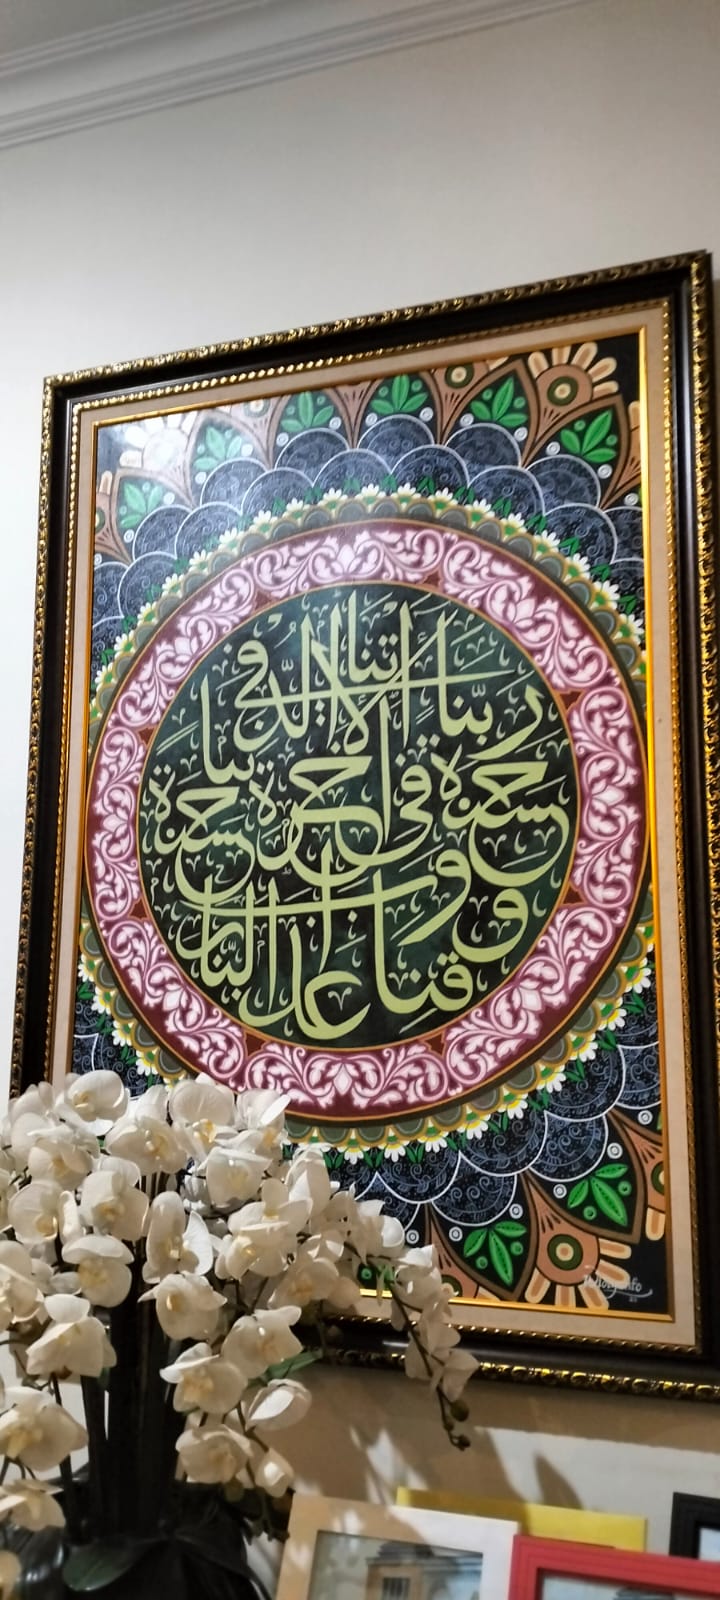 ربّنا اٰتنا فى الدّنيا
حسنة وفى الاٰخرة حسنة
وقنا عذاب النّار